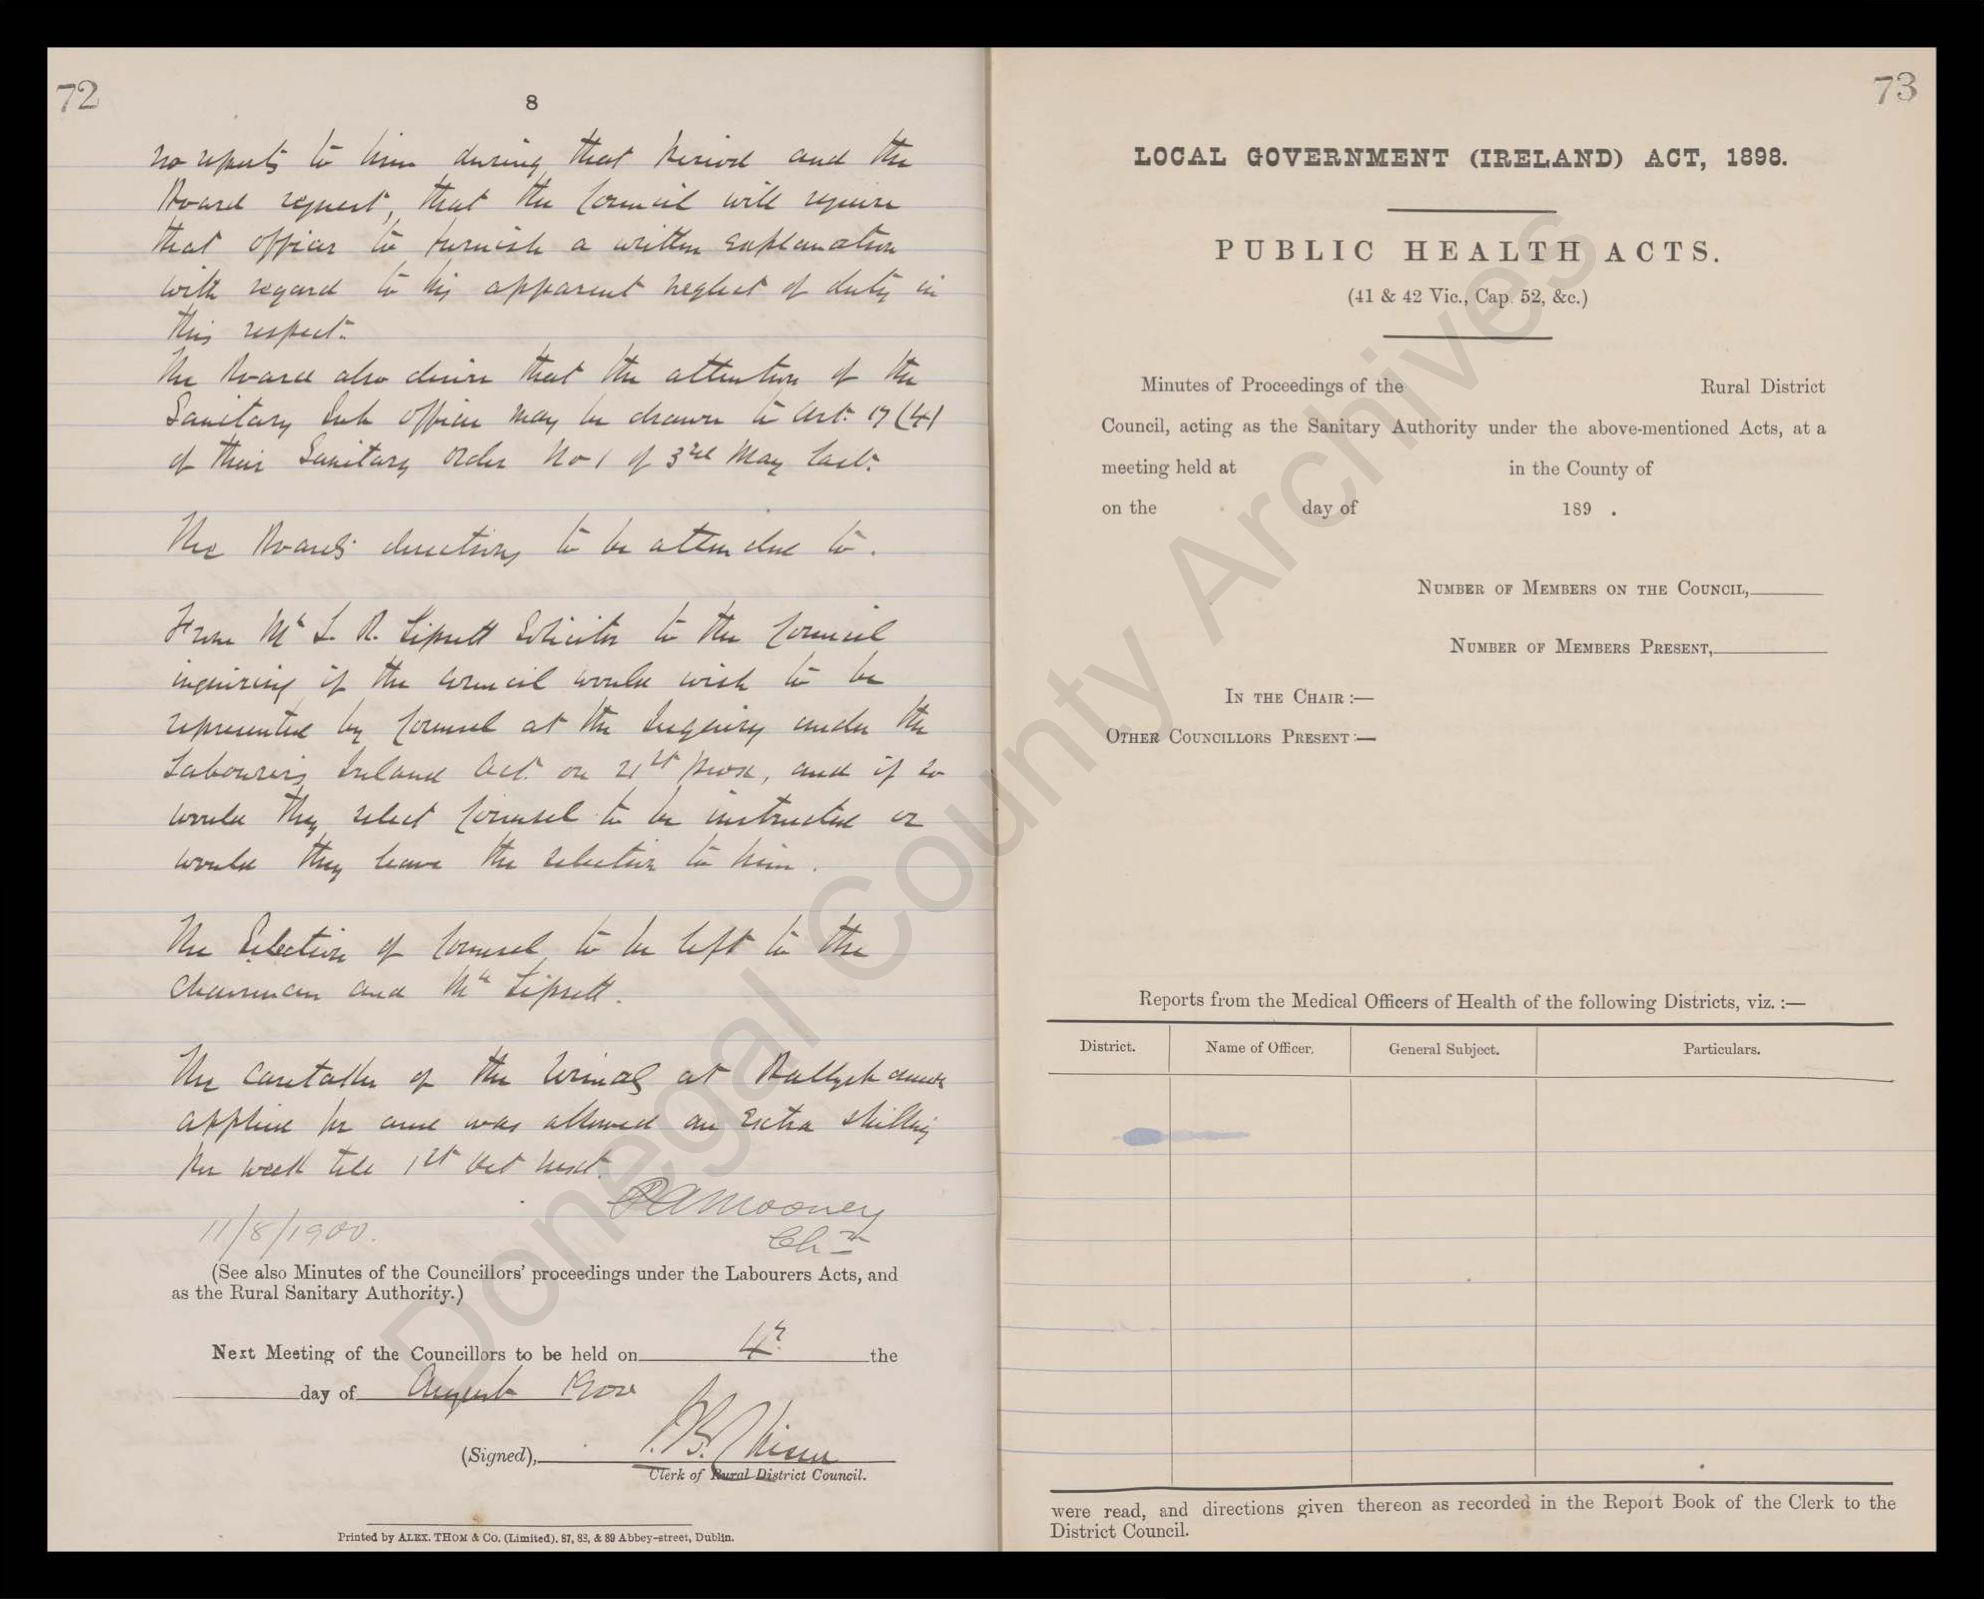 72
8
no reports to him during that period and the
Board request, that the Council will require
that officer to furnish a written explanation
with regard to his apparent neglect of duty in
this respect.
The Board also desire that the attention of the
Sanitary Sub officer may be drawn to Art. 17 (4)
of their Sanitary Order No 1 of 3rd May last.
The Boards directions to be attended to.
From Mr L. R. Lipsett Solicitor to the Council
inquiring if the Council would wish to be
represented by Counsel at the Inquiry under the
Labourers Ireland Act. on 21st prox, and if so
would they select Counsel to be instructed or
would they leave the selection to him.
The Selection of Counsel to be left to the
Chairman and Mr Lipsett.
The Caretaker of the Urinals at Ballyshannon
applied for and was allowed an extra shilling
per week till 1st Oct next.
11/8/1900.
Mooney
Chn
(See also Minutes of the Councillors' proceedings under the Labourers Acts, and
as the Rural Sanitary Authority.)
Next Meeting of the Councillors to be held on 4th the
day of August 1900
(Signed),
Clerk of Rural District Council.
Printed by ALEX. THOM & Co. (Limited), 87, 88, & 89 Abbey-street, Dublin.
73
LOCAL GOVERNMENT (IRELAND) ACT, 1898.
PUBLIC HEALTH ACTS.
(41 & 42 Vic., Cap. 52, &c.)
Minutes of Proceedings of the Rural District
Council, acting as the Sanitary Authority under the above-mentioned Acts, at a
meeting held at in the County of
on the day of 189 .
NUMBER OF MEMBERS ON THE COUNCIL,
NUMBER OF MEMBERS PRESENT,
IN THE CHAIR :—
OTHER COUNCILLORS PRESENT :—
Reports from the Medical Officers of Health of the following Districts, viz. :—
District. Name of Officer. General Subject. Particulars.
were read, and directions given thereon as recorded in the Report Book of the Clerk to the
District Council.
Donegal County Archives